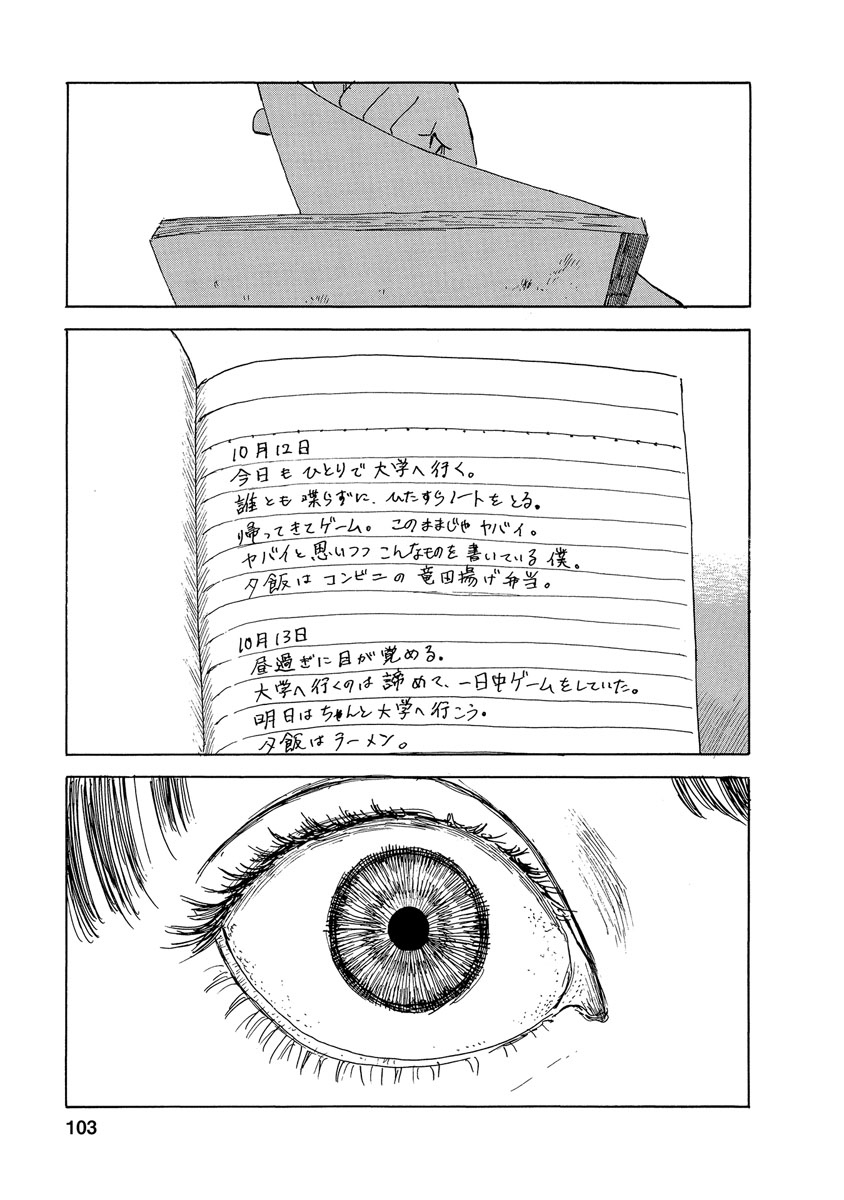 10月12日
今日もひとりで大学へ行く。
誰とも喋らずに、ひたすらノートをとる。
帰ってきてゲーム。このままじゃヤバイ。
ヤバイと思いつつこんなものを書いている僕。
夕飯はコンビニの竜田揚げ弁当。
10月13日
昼過ぎに目が覚める。
大学へ行くのは諦めて、一日中ゲームをしていた。
明日はちゃんと大学へ行こう。
夕飯はラーメン。
103